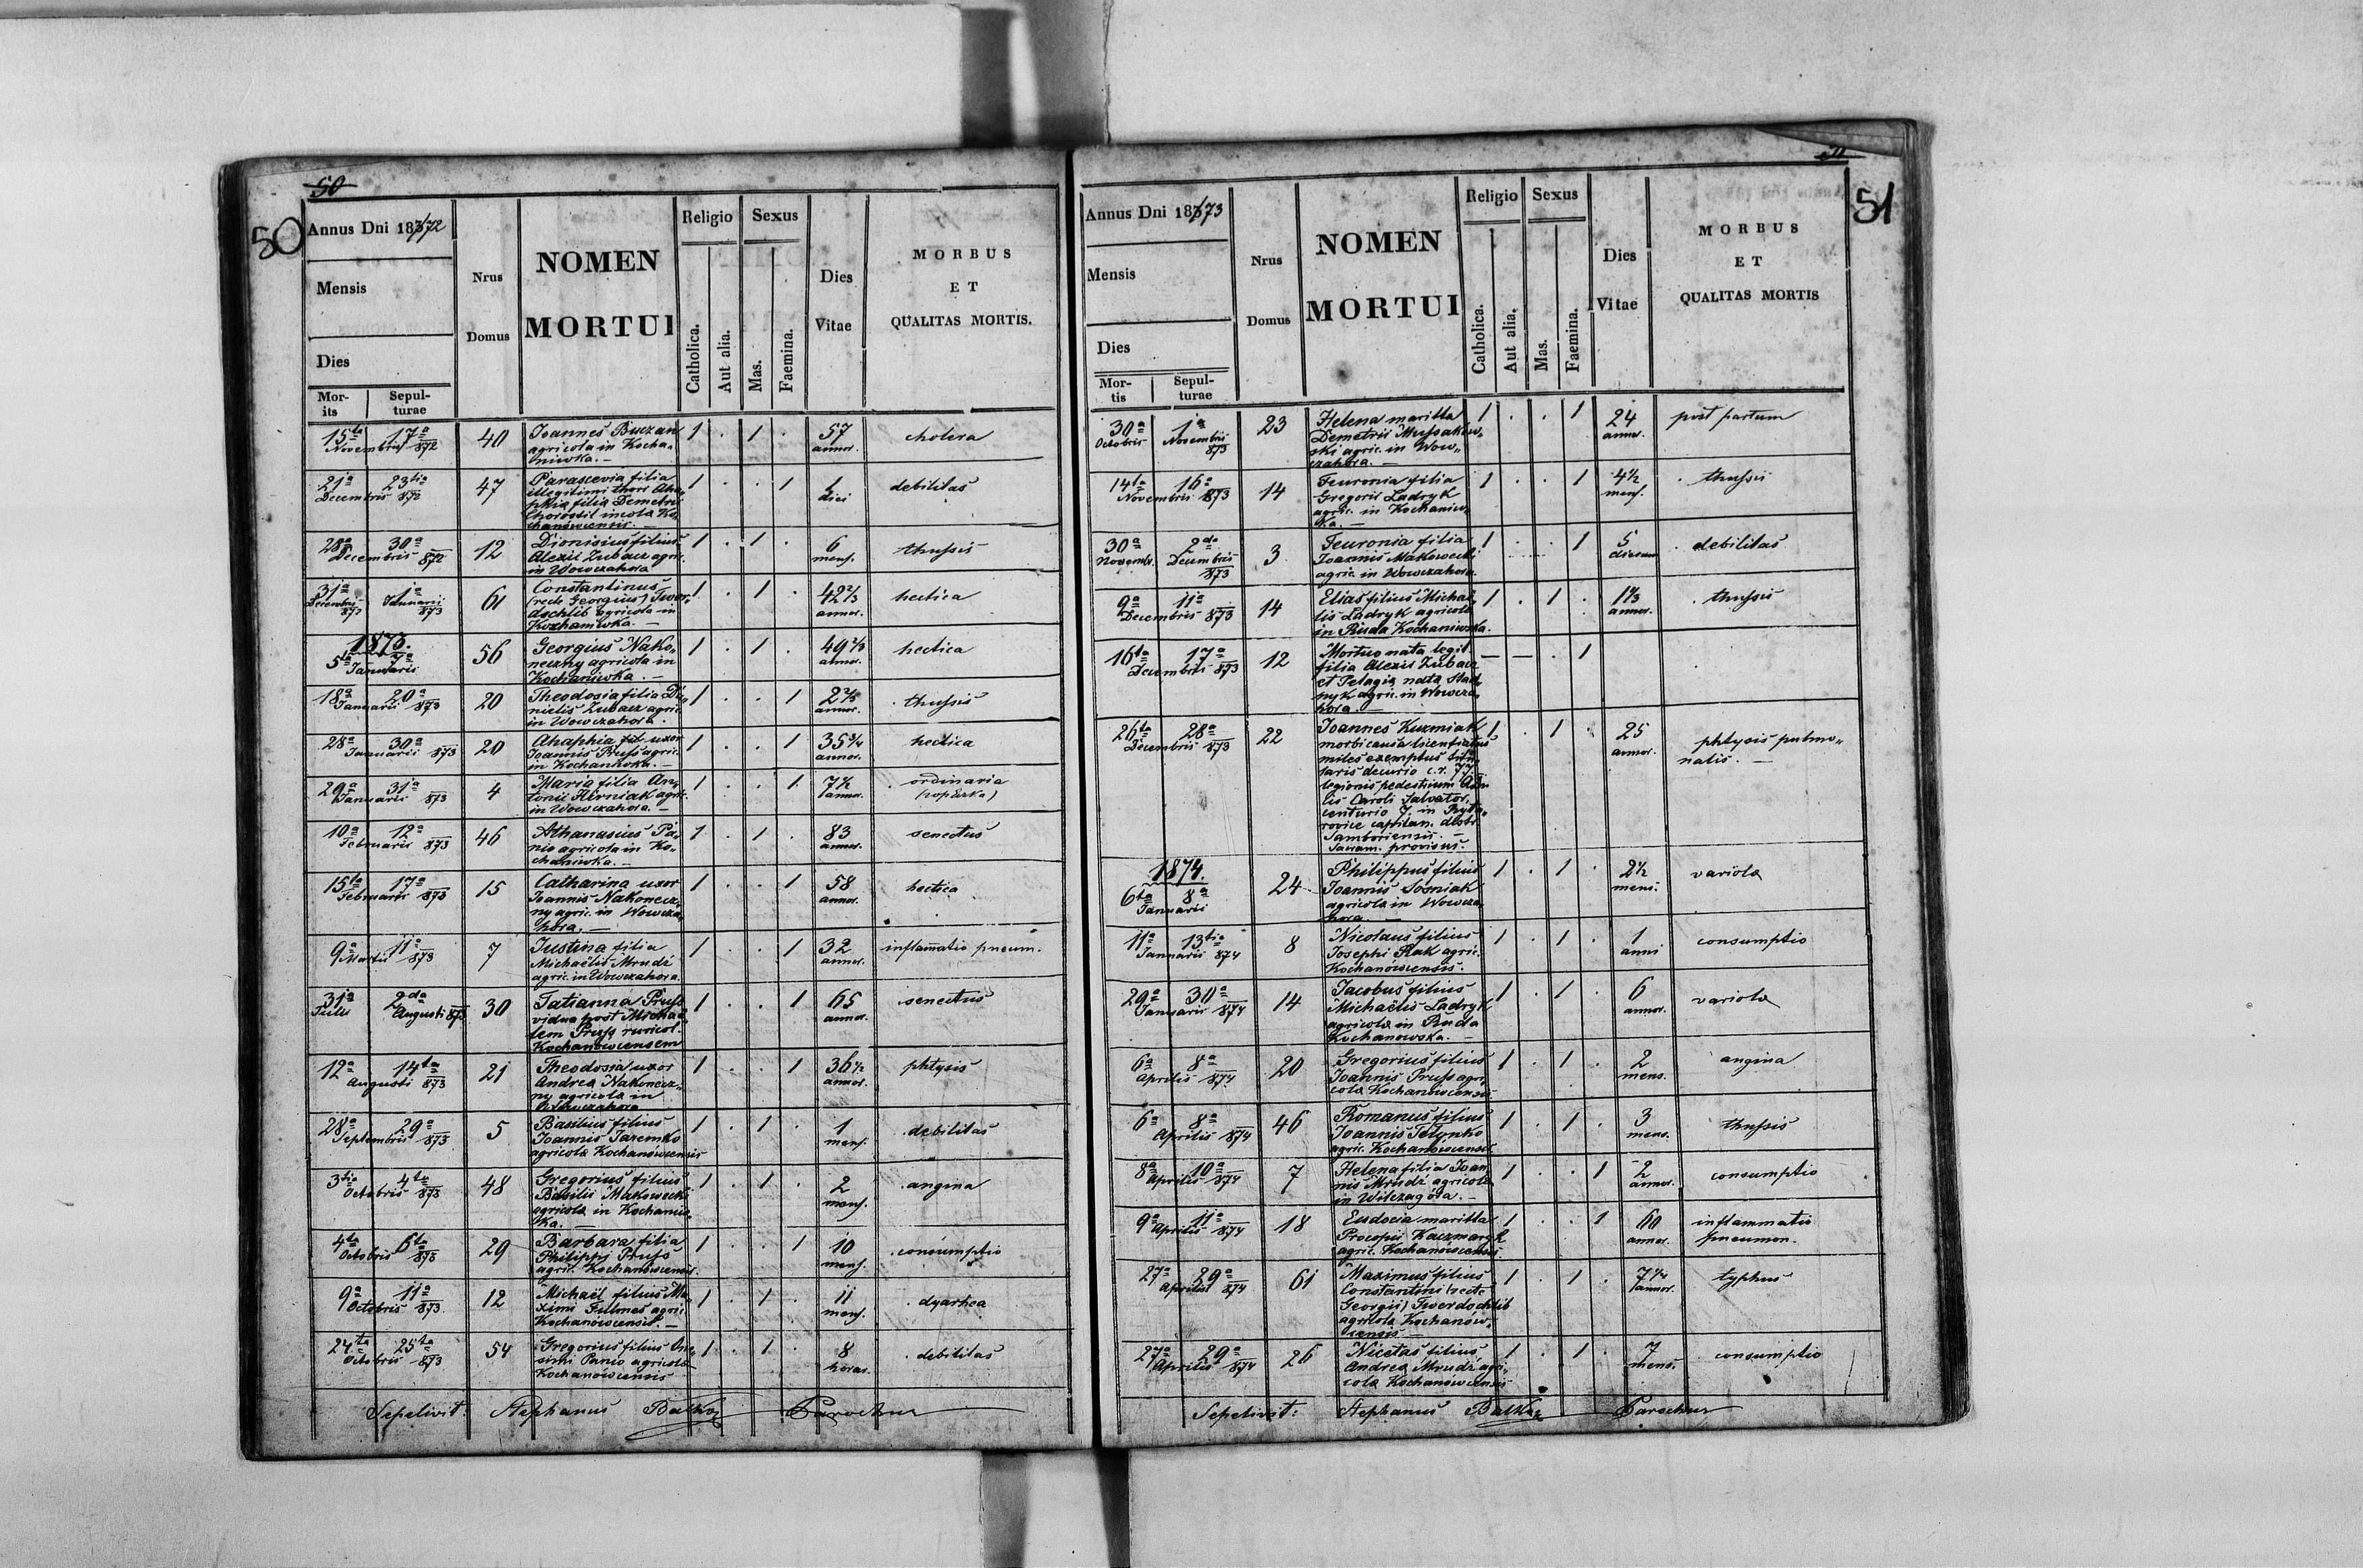 50
50
Annus Dni 1872
Mensis
Dies
Mor-
tis
Sepul-
turae
Nrus
Domus
NOMEN
MORTUI
Religio
Catholica.
Aut alia.
Sexus
Mas.
Faemina.
Dies
Vitae
MORBUS
ET
QUALITAS MORTIS.
15ta 17a
Novembris 872
40
Joannes Buczan
agricola in Kocha-
niwka. —
1 . 1 .
57
annor.
cholera
21a 23tia
Decembris 872
47
Parascevia filia
illegitimi thori Aha-
phia filia Demetrii
incola Ko-
chanówcensis. —
1 . . 1
1
diei
debilitas
28a 30a
Decembris 872
12
Dionisius filius
Alexii Zubacz agric.
in Wowczahora
1 . 1 .
6
mens.
thussis
31a 1a
Decembris Januarii
872 873
61
Constantinus
(recte Georgius) Twer-
dochlib agricola in
Kochaniwka. —
1 . 1 .
42 2/3
annor.
hectica
1873.
5a 7a
Januarii
56
Georgius Nako-
neczny agricola in
Kochaniwka. —
1 . 1 .
49 2/3
annor.
hectica
18a 20a
Januarii 873
20
Theodosia filia Da-
nielis Zubacz agric.
in Wowczahora.
1 . . 1
2 2/3
annor.
thussis
28a 30a
Januarii 873
20
Ahaphia uxor
Joannis Pruss agric.
in Kochaniwka. —
1 . . 1
35 3/4
annor.
hectica
29a 31a
Januarii 873
4
Maria filia An-
tonii Hirniak agric.
in Wowczahora. —
1 . . 1
7 1/2
annor.
ordinaria
10a 12a
Februarii 873
46
Athanasius Pa-
nio agricola in Ko-
chaniwka. —
1 . 1 .
83
annor.
senectus
15ta 17a
Februarii 873
15
Catharina uxor
Joannis Nakonecz-
ny agric. in Wowcza-
hora. —
1 . . 1
58
annor.
hectica
9a 11a
Martii 873
7
Justina filia
Michaëlis Mrudź
agric. in Wowczahora.
1 . . 1
32
annor.
inflamatio pneum.
31a 2da
Julii Augusti 873
30
Tatianna Pruss
vidua post Michae-
lem Pruss ruricol.
Kochanówcensem
1 . . 1
65
annor.
senectus
12a 14ta
Augusti 873
21
Theodosia uxor
Andrea Nakonecz-
ny agricola in
Wowczahora
1 . . 1
36 1/2
annor.
phtysis
28a 29a
Septembris 873
5
Basilius filius
Joannis Jaremko
agricola Kochanówcensis
1 . 1 .
1
mens.
debilitas
3tia 4ta
Octobris 873
48
Gregorius filius
Basilii Makowecki
agricola in Kochaniw-
ka. —
1 . 1 .
2
mens.
angina
4ta 6ta
Octobris 873
29
Barbara filia
Philippi Pruss
agric. Kochanówcensis.
1 . . 1
10
mens.
consumptio
9a 11a
Octobris 873
12
Michaël filius Ma-
ximi Fulmes agric.
Kochanówcensis. —
1 . 1 .
11
mens.
dyarhea
24ta 25ta
Octobris 873
54
Gregorius filius One-
simi Panio agricola
Kochanówcensis
1 . 1 .
8
horas.
debilitas
Sepelivit: Stephanus Bałko Parochus
51
51
Annus Dni 1873
Mensis
Dies
Mor-
tis
Sepul-
turae
Nrus
Domus
NOMEN
MORTUI
Religio
Catholica.
Aut alia.
Sexus
Mas.
Faemina.
Dies
Vitae
MORBUS
ET
QUALITAS MORTIS
30a 1a
Octobris Novembris
873
23
Helena maritta
Demetrii Mussakow-
ski agric. in Wow-
czahora. —
1 . . 1
24
annor.
post partum
14ta 16a
Novembris 873
14
Feuronia filia
Gregorii Ladryk
agric. in Kochaniw-
ka. —
1 . . 1
4 1/2
mens.
thussis
30a 2da
Novembr. Decembris
873
3
Feuronia filia
Joannis Makowecki
agric. in Wowczahora.
1 . . 1
5
dierum
debilitas
9a 11a
Decembris 873
14
Elias filius Michaë-
lis Ladryk agricola
in Ruda Kochaniwska.
1 . 1 .
1 1/3
annor.
thussis
16ta 17a
Decembris 873
12
Mortuo nata legit.
filia Alexii Zubacz
et Pelagia nata Stad-
nyk agric. in Wowcza-
hora. —
— — . 1
26ta 28a
Decembris 873
22
Joannes Kuzmiak
morbi causa licentiatus
miles exemptus
decurio c. r. 77
legionis pedestrium
Caroli Salvator,
centurio 7. in
capitan. distr.
Samboriensis. —
Sacram. provisus.
1 . 1 .
25
annor.
phtysis pulmo-
nalis. —
1874.
6ta 8a
Januarii
24
Philippus filius
Joannis Sosniak
agricola in Wowcza-
hora. —
1 . 1 .
2 1/2
mens.
variola
11a 13tia
Januarii 874
8
Nicolaus filius
Josephi agric.
Kochanówcensis.
1 . 1 .
1
anni
consumptio
29a 30a
Januarii 874
14
Jacobus filius
Michaëlis Ladryk
agricola in Ruda
Kochanowska. —
1 . 1 .
6
annor.
variola
6a 8a
Aprilis 874
20
Gregorius filius
Joannis Pruss agri-
cola Kochanówcensis
1 . 1 .
2
mens.
angina
6a 8a
Aprilis 874
46
Romanus filius
Joannis
agric. Kochanówcensis.
1 . 1 .
3
mens.
thussis
8a 10a
Aprilis 874
7
Helena filia Joan-
nis Mrudź agricola
in Wilczagóra. —
1 . . 1
2
annor.
consumptio
9a 11a
Aprilis 874
18
Eudocia maritta
Procopii Kaczmaryk
agric. Kochanówcensis.
1 . . 1
60
annor.
inflammatio
pneumon.
27a 29a
Aprilis 874
61
Maximus filius
Constantini (recte
Georgii) Twerdochlib
agricola Kochanów-
censis —
1 . 1 .
7 1/4
annor.
typhus
27a 29a
Aprilis 874
26
Nicetas filius
Andrea Mrudź agri-
cola Kochanówcensis
1 . 1 .
7
mens.
consumptio
Sepelivit: Stephanus Bałko Parochus